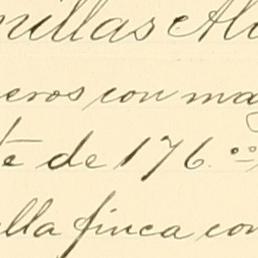 nillas Al
eros con ma
te de 176.⁰⁰
lla finca con